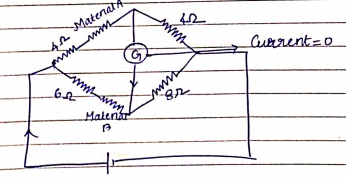 Material A
4Ω
4Ω
G
Current = 0
6Ω
8Ω
Material
B